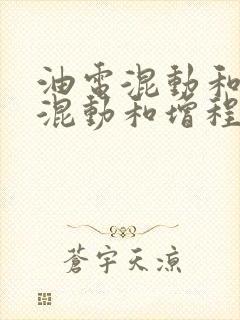 油电混動和
混動和增程
蒼宇天涼